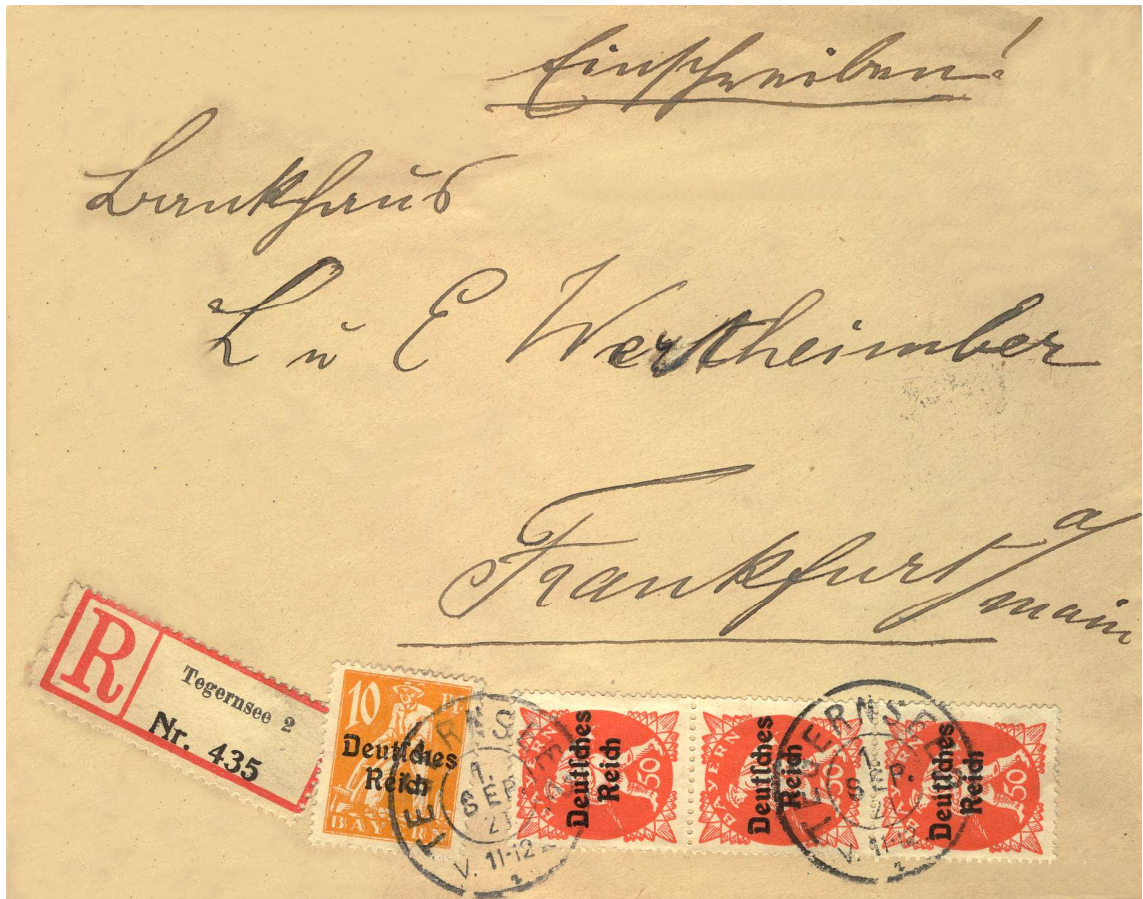 Einschreiben!
Bankhaus
L u E Wertheimber
Frankfurt a/
main
R
Tegernsee 2
Nr. 435
10
Deutsches
Reich
BAYERN
TEGERNSEE
1.
SEP.
21
V. 11-12
2
BAYERN
50
Deutsches
Reich
BAYERN
50
Deutsches
Reich
BAYERN
50
Deutsches
Reich
TEGERNSEE
1.
SEP.
V. 11-12
2